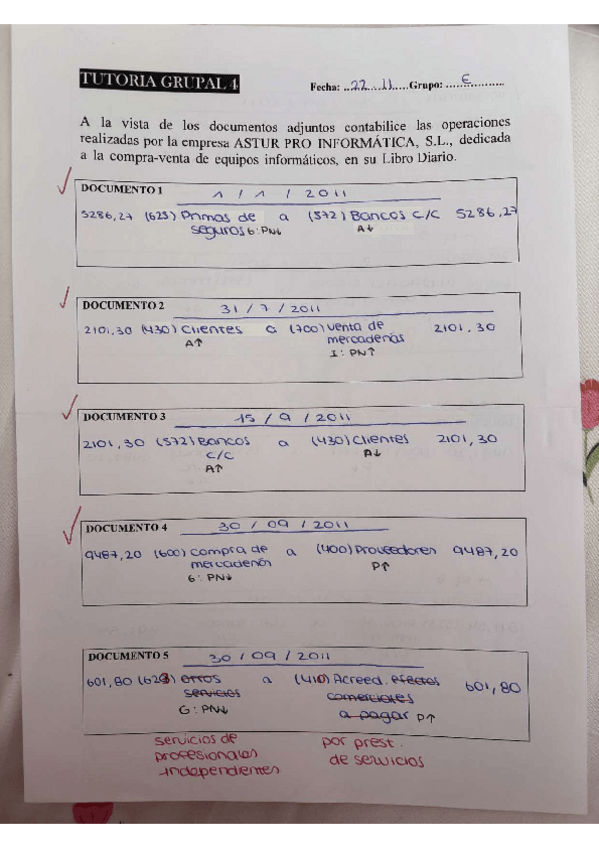 TUTORIA GRUPAL 4
Fecha: ..22...11.....Grupo: ......E..........
A la vista de los documentos adjuntos contabilice las operaciones
realizadas por la empresa ASTUR PRO INFORMÁTICA, S.L., dedicada
a la compra-venta de equipos informáticos, en su Libro Diario.
DOCUMENTO 1 1 / 1 / 2011
5286,27 (625) Primas de a (572) Bancos c/c 5286,27
seguros G: PN↓ A↓
DOCUMENTO 2 31 / 7 / 2011
2101,30 (430) Clientes a (700) Venta de 2101,30
A↑ mercaderías
I: PN↑
DOCUMENTO 3 15 / 9 / 2011
2101,30 (572) Bancos a (430) Clientes 2101,30
c/c A↓
A↑
DOCUMENTO 4 30 / 09 / 2011
9487,20 (600) Compra de a (400) Proveedores 9487,20
mercaderías P↑
G: PN↓
DOCUMENTO 5 30 / 09 / 2011
601,80 (623) otros a (410) Acreed. efectos 601,80
servicios comerciales
G: PN↓ a pagar P↑
servicios de por prest.
profesionales de servicios
independientes